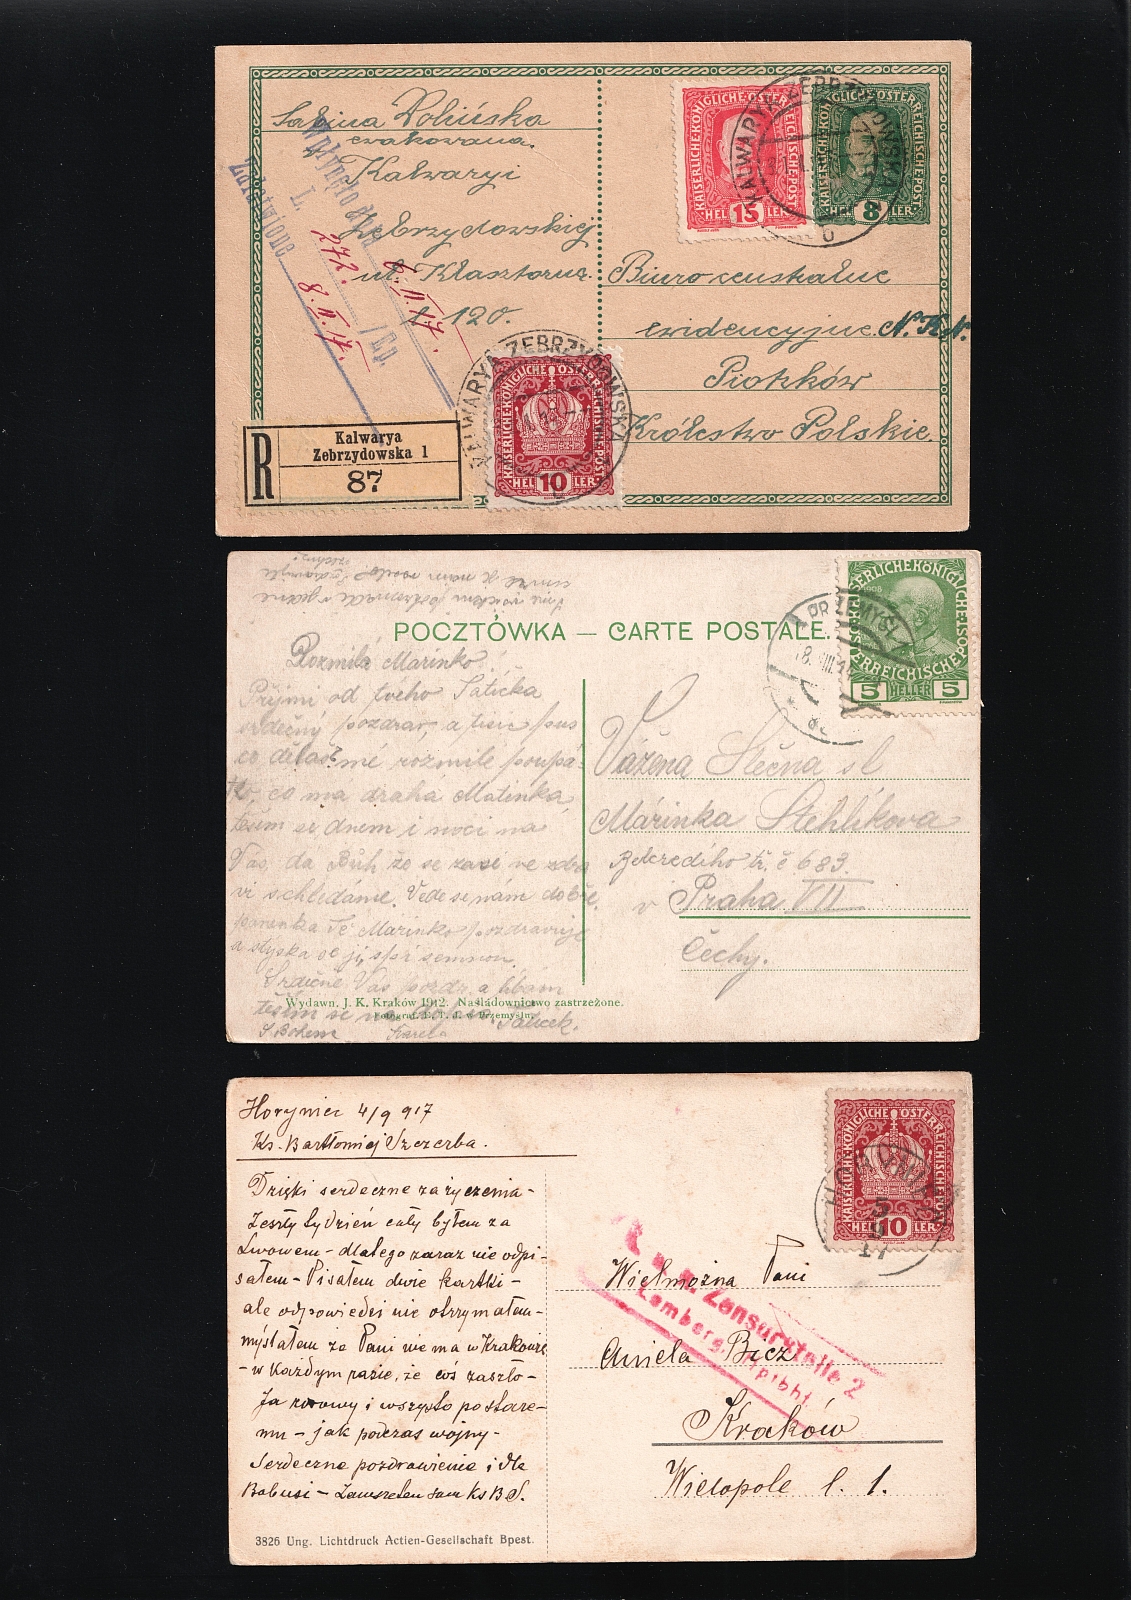 Sabina Rolińska
Kalwaryi
Zebrzydowskiej
ul. Klasztorna
l. 120.
Wpłynęło dnia 6. II. 17.
L. 272. /Ep.
Załatwiono 8. II. 17.
KAISERLICHE KÖNIGLICHE ÖSTERREICHISCHE POST
HELLER 15
KAISERLICHE KÖNIGLICHE ÖSTERREICHISCHE POST
HELLER 8
KALWARYA ZEBRZYDOWSKA
Biuro centralne
ewidencyjne N.K.N.
Piotrków
Królestwo Polskie.
KALWARYA ZEBRZYDOWSKA
KAISERLICHE KÖNIGLICHE ÖSTERREICHISCHE POST
HELLER 10
R
Kalwarya
Zebrzydowska 1
87
POCZTÓWKA — CARTE POSTALE.
KAISERLICHE KÖNIGLICHE ÖSTERREICHISCHE POST
1908
5 HELLER 5
PRZEMYŚL
Rozmilá Marinko!
Přijmi od tvého Tatíčka
srdečný pozdrav, a
co děláš mé rozmilé poupá-
tko, co má drahá Matinka,
těším se dnem i nocí na
Vás, dá Bůh že se zase ve zdra
ví schledáme. Vede se nám dobře,
Tě Marinko pozdravuje
a stýská se jí,
Srdečně Vás pozdr. a líbám
těším se Tatíček.
Karela
Vážena Slečna sl
Márinka Stehlíkova
Belcrediho tř. č 683.
v Praha VII
Čechy.
Wydawn. J. K. Kraków 1912. Naśladownictwo zastrzeżone.
w Przemyślu.
Horyniec 4/9 917
Ks. Bartłomiej Szczerba.
Dzięki serdeczne za życzenia -
Zeszły tydzień cały byłem za
Lwowem - dlatego zaraz nie odpi-
sałem - Pisałem dwie kartki -
ale odpowiedzi nie otrzymałem -
myślałem że Pani nie ma w Krakowie
- w każdym razie, że coś zaszło -
Ja zdrowy i wszystko po stare-
mu - jak podczas wojny -
Serdeczne pozdrowienia i dla
Babusi - Zawsze ten sam Ks B S.
KAISERLICHE KÖNIGLICHE ÖSTERREICHISCHE POST
HELLER 10
K. u. k. Zensurstelle 2
Lemberg,
Wielmożna Pani
Aniela Bicz
Kraków
Wielopole l. 1.
3826 Ung. Lichtdruck Actien-Gesellschaft Bpest.